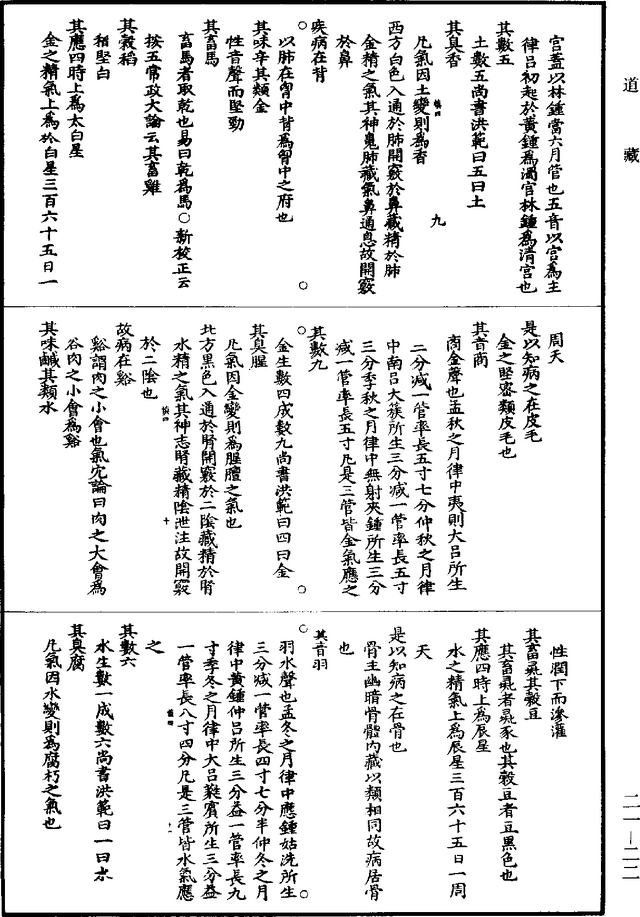 道藏
宮蓋以林鍾當六月管也五音以宮為主
律呂初起於黃鍾為濁宮林鍾為清宮也
其數五
土數五尚書洪範曰五曰土
其臭香
凡氣因土變則為香
慎四
九
西方白色入通於肺開竅於鼻藏精於肺
金精之氣其神魄肺藏氣鼻通息故開竅
於鼻
疾病在背
以肺在胷中背為胷中之府也
其味辛其類金
性音聲而堅勁
其畜馬
畜馬者取乾也易曰乾為馬○新校正云
按五常政大論云其畜雞
其穀稻
稻堅白
其應四時上為太白星
金之精氣上為於白星三百六十五日一
周天
是以知病之在皮毛
金之堅密類皮毛也
其音商
商金聲也孟秋之月律中夷則大呂所生
三分減一管率長五寸七分仲秋之月律
中南呂大蔟所生三分減一管率長五寸
三分季秋之月律中無射夾鍾所生三分
減一管率長五寸凡是三管皆金氣應之
其數九
金生數四成數九尚書洪範曰四曰金
其臭腥
凡氣因金變則為腥膻之氣也
北方黑色入通於腎開竅於二陰藏精於腎
水精之氣其神志腎藏精陰泄注故開竅
慎四
十
於二陰也
故病在谿
谿謂肉之小會也氣穴論曰肉之大會為
谷肉之小會為谿
其味鹹其類水
性潤下而滲灌
其畜彘其穀豆
其畜彘者彘豕也其穀豆者豆黑色也
其應四時上為辰星
水之精氣上為辰星三百六十五日一周
天
是以知病之在骨也
骨主幽暗骨體內藏以類相同故病居骨
也
其音羽
羽水聲也孟冬之月律中應鍾姑洗所生
三分減一管率長四寸七分半仲冬之月
律中黃鍾仲呂所生三分益一管率長九
寸季冬之月律中大呂蕤賓所生三分益
慎四
十一
一管率長八寸四分凡是三管皆水氣應
之
其數六
水生數一成數六尚書洪範曰一曰水
其臭腐
凡氣因水變則為腐朽之氣也
二一—二二